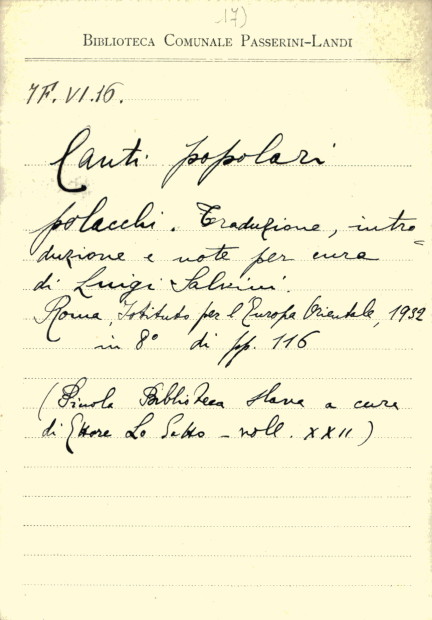 17)
BIBLIOTECA COMUNALE PASSERINI-LANDI
7F.VI.16.
Canti popolari
polacchi. Traduzione, intro=
duzione e note per cura
di Luigi Salvini.
Roma, Istituto per l'Europa Orientale, 1932
in 8° di pp. 116
(Picola Biblioteca slava a cura
di Ettore Lo Gatto - voll. XXII)